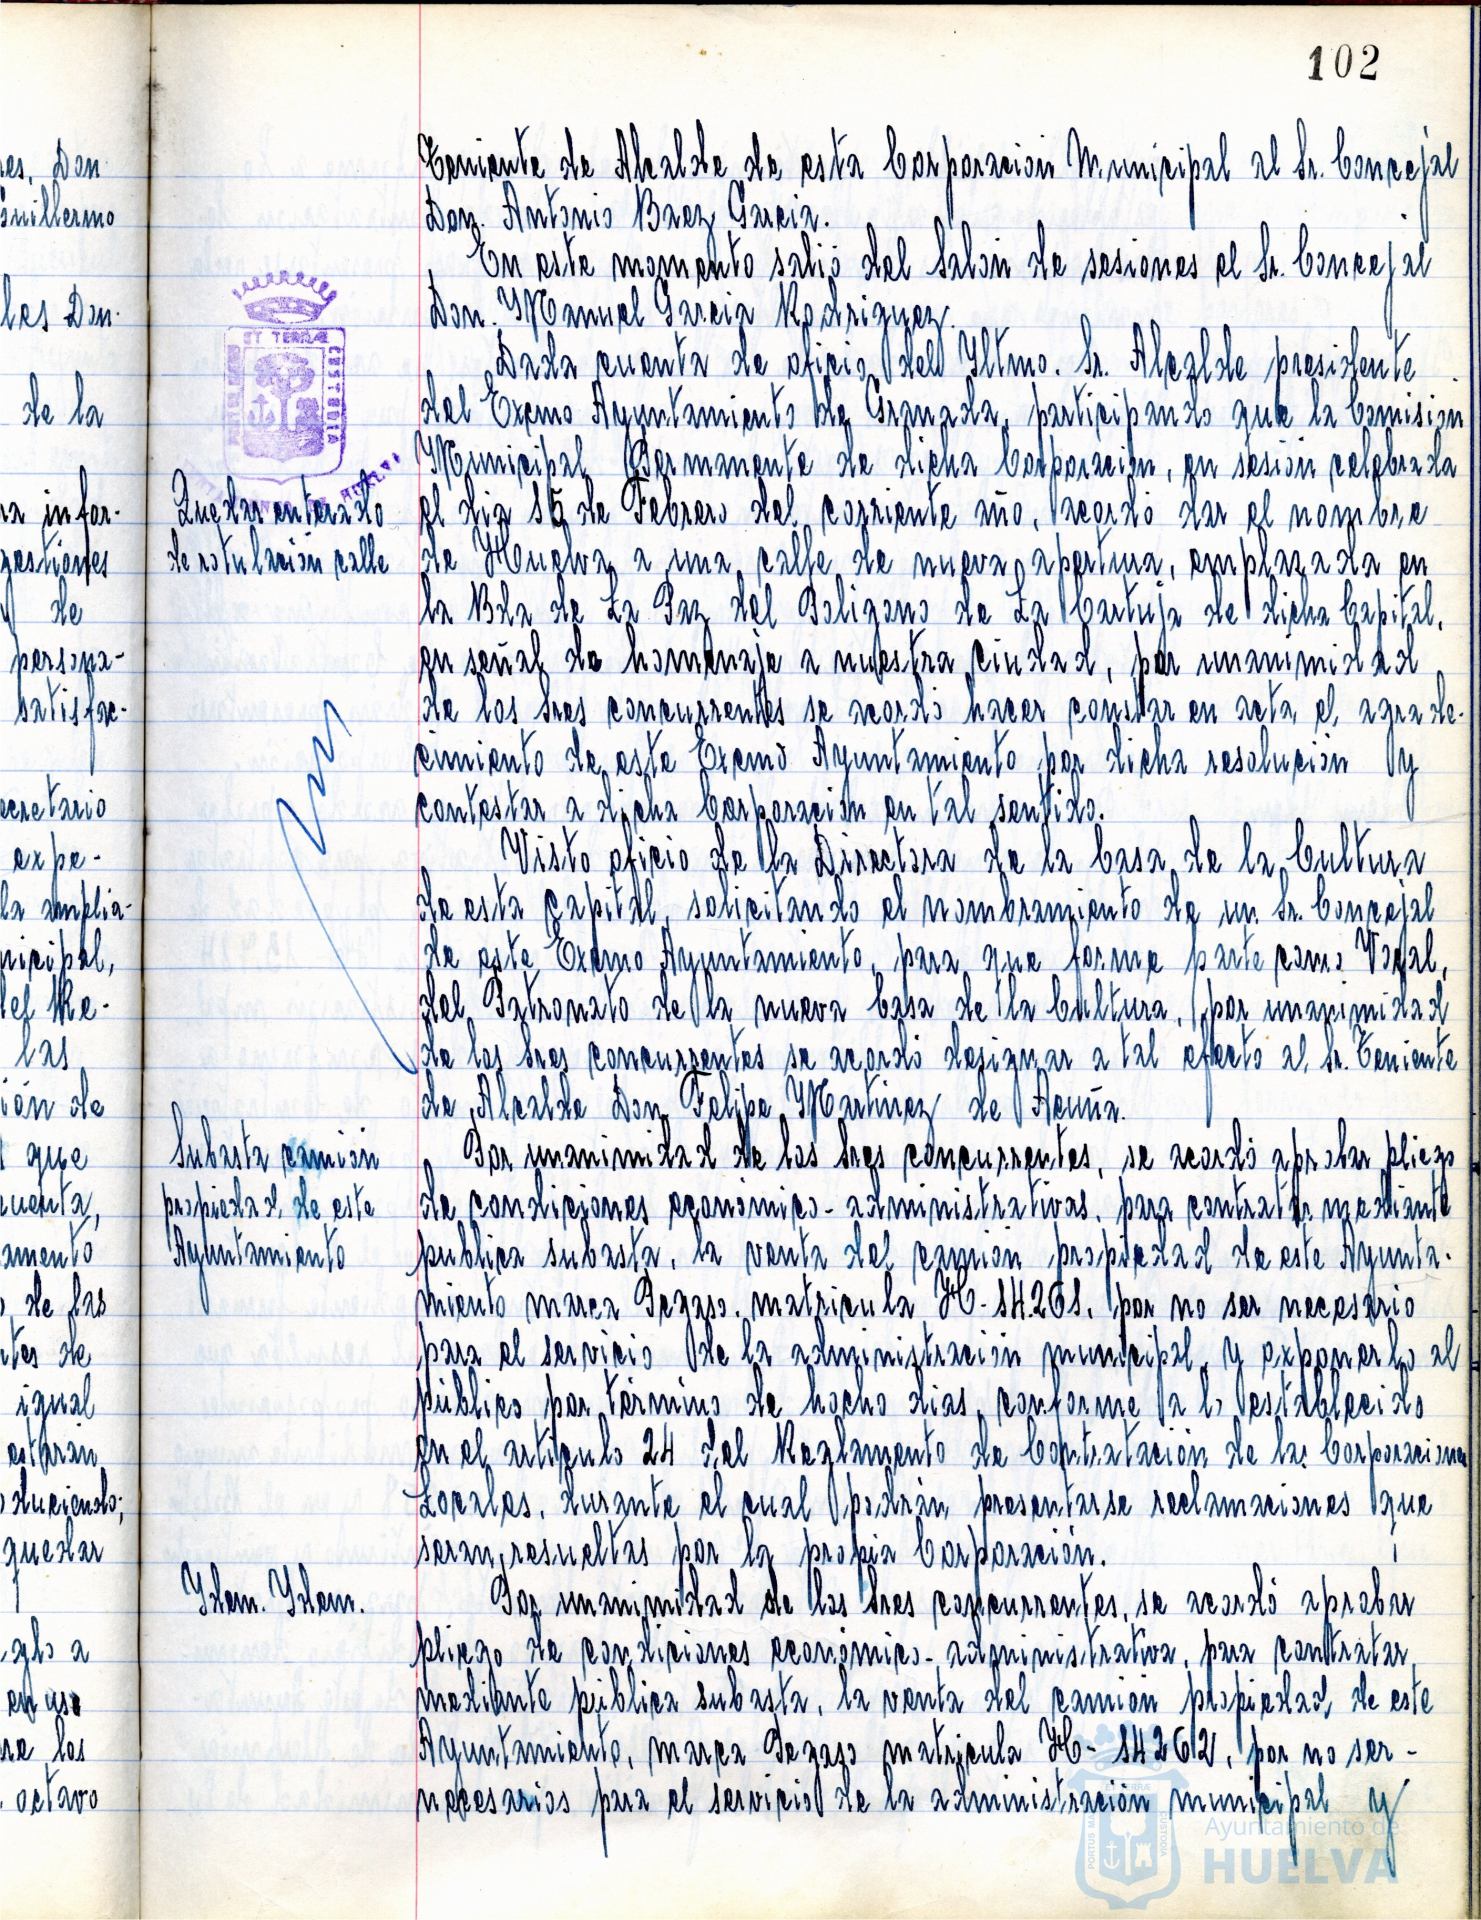 102
Teniente de Alcalde de esta Corporacion Municipal al Sr. Concejal
Don. Antonio Baez Garcia.
En este momento salió del Salon de sesiones el Sr. Concejal
Don. Manuel Garcia Rodriguez.
Dada cuenta de oficio del Yltmo. Sr. Alcalde presidente
del Excmo Ayuntamiento de Granada, participando que la Comision
Municipal Permanente de dicha Corporacion, en sesión celebrada
Quedar enterado
de rotulación calle
el dia 15 de Febrero del corriente año, acordó dar el nombre
de Huelva a una calle de nueva apertura, emplazada en
la Bda de La Paz del Poligono de La Cartuja de dicha Capital,
en señal de homenaje a nuestra ciudad, por unanimidad
de los Sres concurrentes se acordó hacer constar en acta el agrade-
cimiento de este Excmo Ayuntamiento por dicha resolución y
contestar a dicha Corporación en tal sentido.
Visto oficio de la Directora de la Casa de la Cultura
de esta capital, solicitando el nombramiento de un Sr. Concejal
de este Excmo Ayuntamiento, para que forme parte como Vocal,
del Patronato de la nueva Casa de la Cultura, por unanimidad
de los Sres concurrentes se acordó designar a tal efecto al Sr. Teniente
de Alcalde Don Felipe Martinez de Acuña.
Subasta camión
propiedad de este
Ayuntamiento
Por unanimidad de los Sres concurrentes, se acordó aprobar pliego
de condiciones económico-administrativas, para contratar mediante
publica subasta, la venta del camión propiedad de este Ayunta-
miento marca Pegaso, matricula H-14.261, por no ser necesario
para el servicio de la administración municipal, y exponerlo al
público por término de hocho dias, conforme a lo establecido
en el articulo 24 del Reglamento de Contratación de las Corporaciones
Locales, durante el cual podrán presentarse reclamaciones que
seran resueltas por la propia Corporación.
Ydem. Ydem.
Por unanimidad de los Sres concurrentes, se acordó aprobar
pliego de condiciones económico-administrativa, para contratar,
mediante pública subasta, la venta del camión propiedad de este
Ayuntamiento, marca Pegaso matricula H-14262, por no ser-
necesarios para el servicio de la administración municipal y
Don
Guillermo
les Don.
de la
infor-
gestiones
de
persona-
satisfac-
ecretario
expe-
la amplia-
nicipal,
del Re-
las
ión de
que
uenta,
amento
de las
ntes de
igual
estarán
oduciendo;
quedar
glo a
en uso
los
octavo
ET TERRÆ
CUSTODIA
Ayuntamiento de
HUELVA